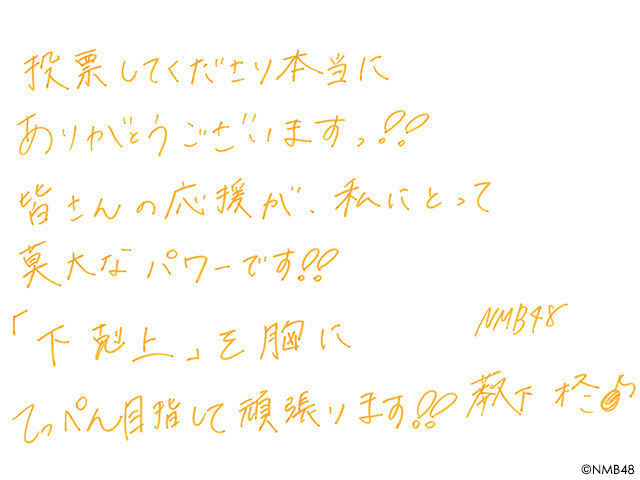 投票してくださり本当に
ありがとうございますっ!!
皆さんの応援が、私にとって
莫大なパワーです!!
「下剋上」を胸に
てっぺん目指して頑張ります!!
NMB48
藪下 柊
©NMB48